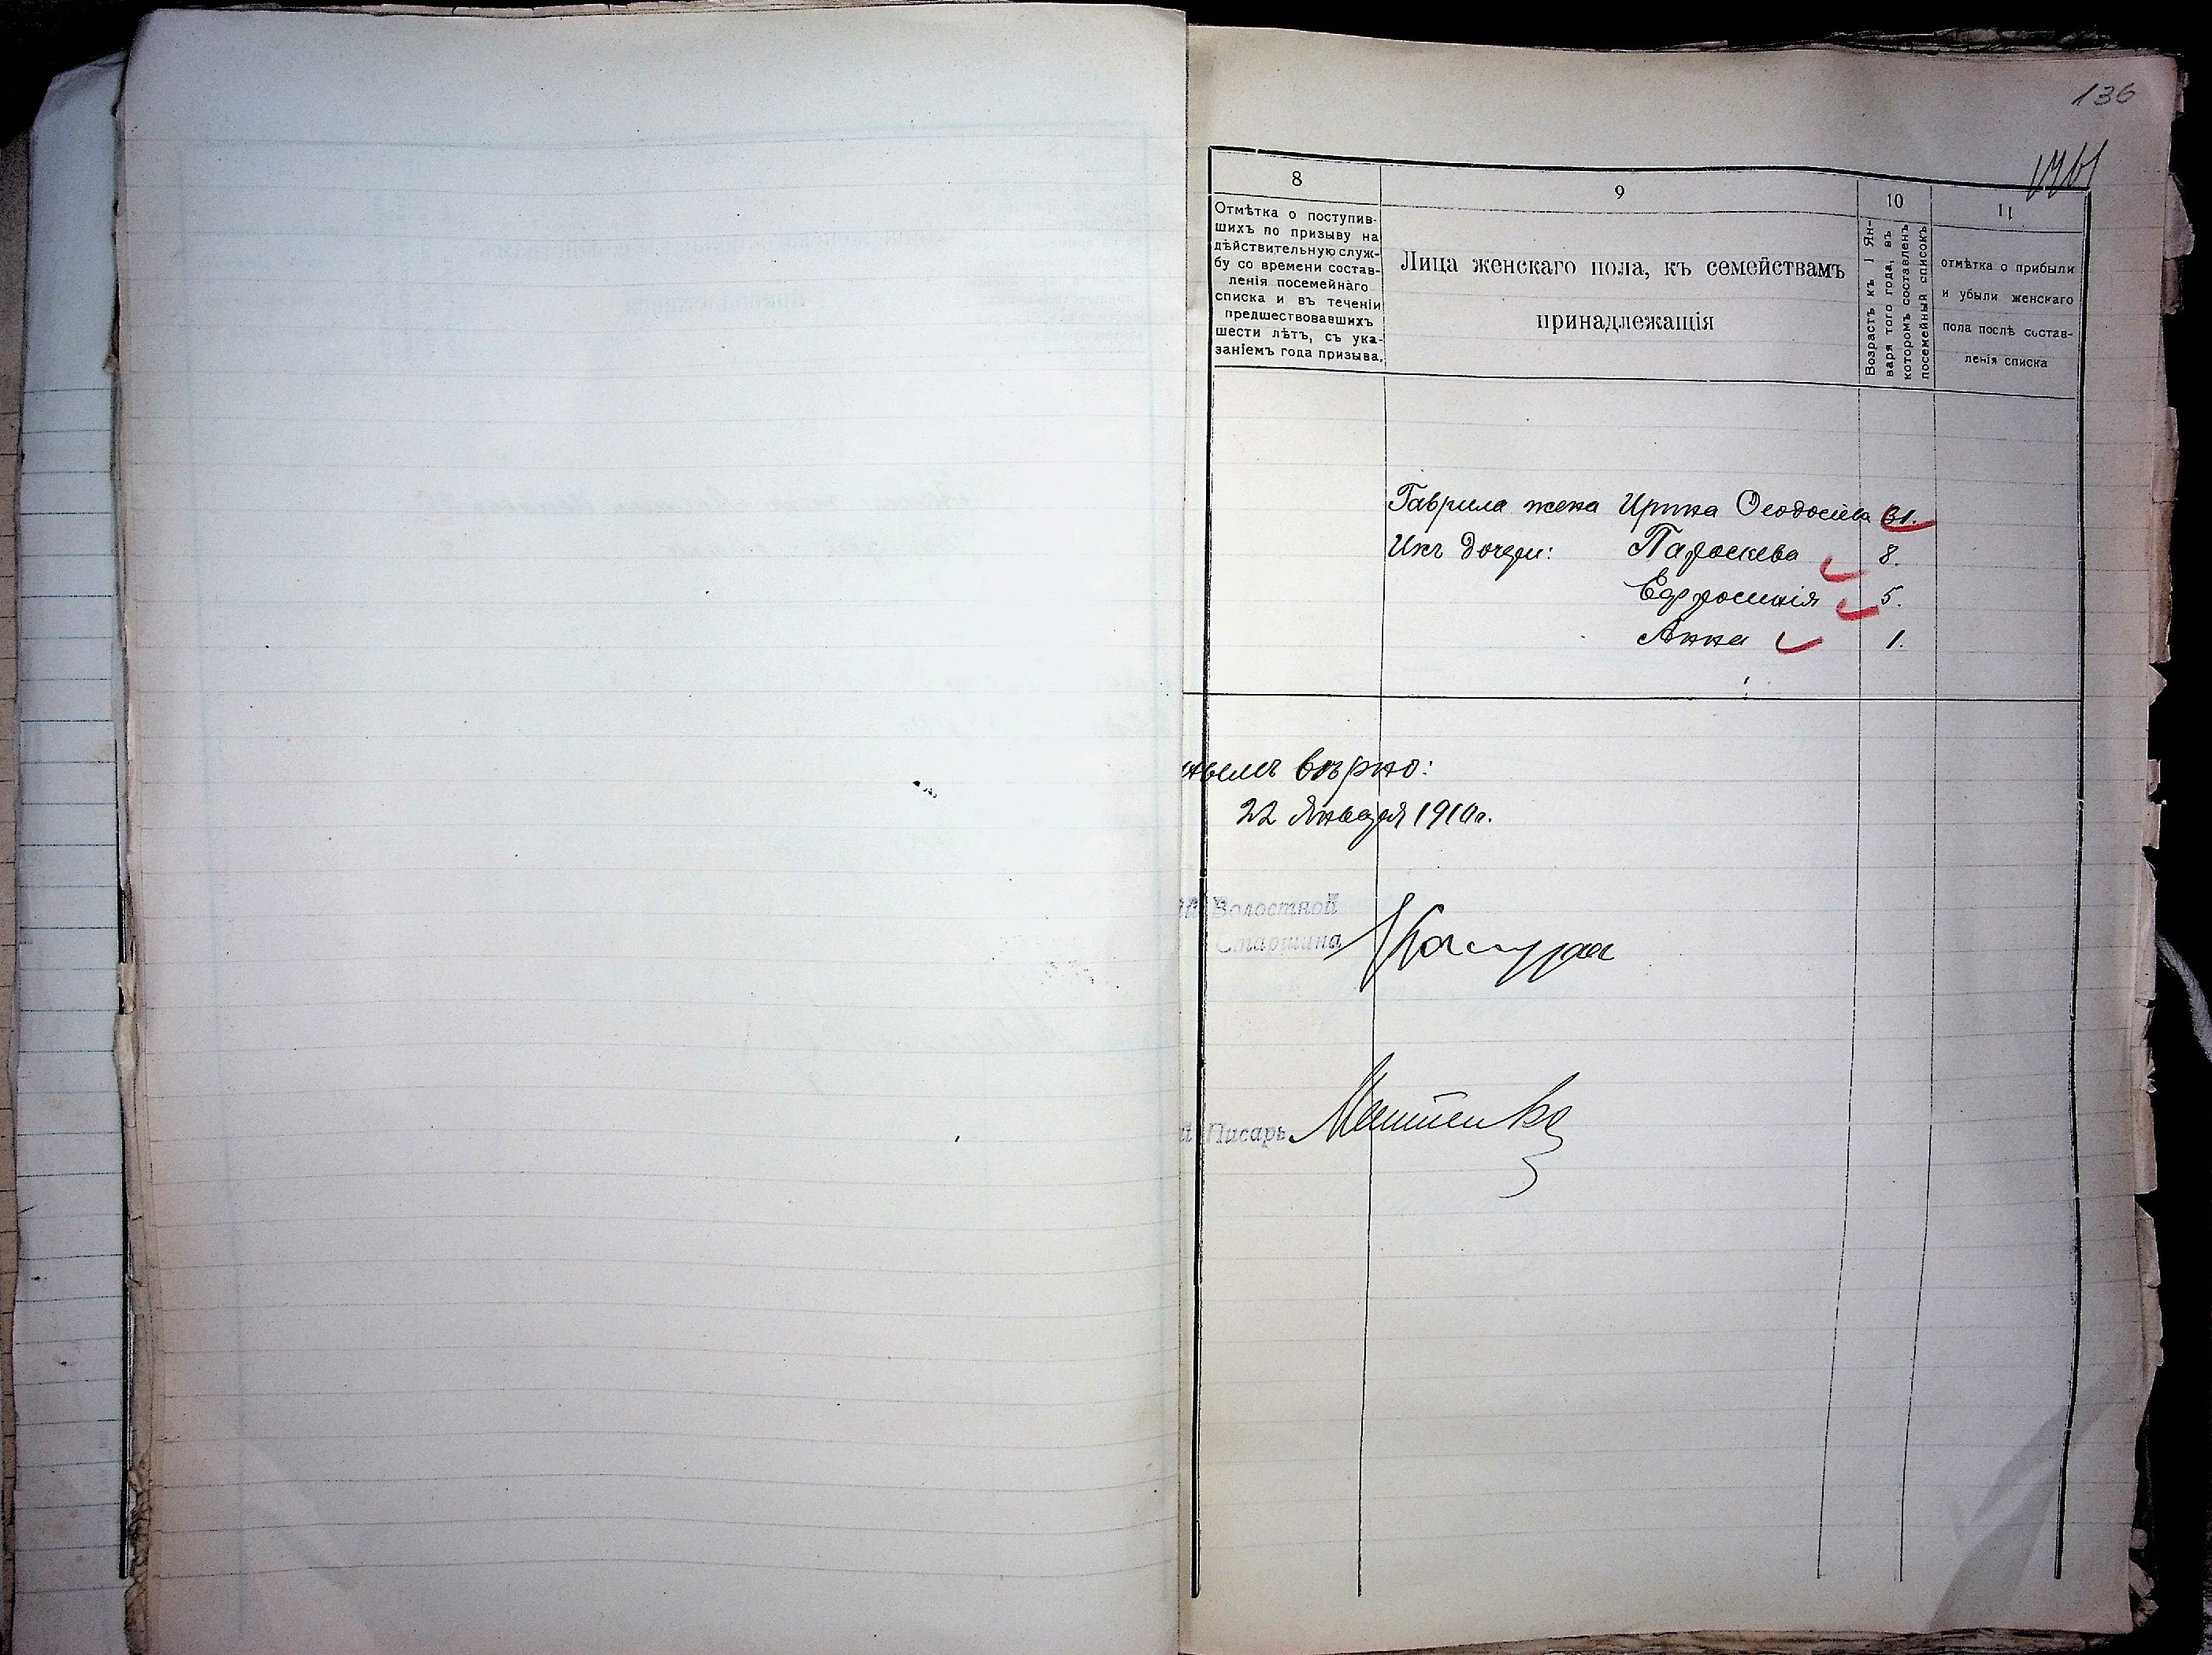 136
8
9
10
11
Отмѣтка о поступив-
шихъ по призыву на
дѣйствительную служ-
бу со времени состав-
ленія посемейнаго
списка и въ теченіи
предшествовавшихъ
шести лѣтъ, съ ука-
заніемъ года призыва.
Лица женскаго пола, къ семействамъ
принадлежащія
Возрастъ къ 1 Ян-
варя того года, въ
которомъ составленъ
посемейный списокъ
отмѣтка о прибыли
и убыли женскаго
пола послѣ состав-
ленія списка
Гаврила жена Ирина Ѳеодосіева 31.
Ихъ дочери: Параскева 8.
Ефросинія 5.
Анна 1.
вѣрно:
22 Января 1910г.
Волостной
Старшина
Писарь